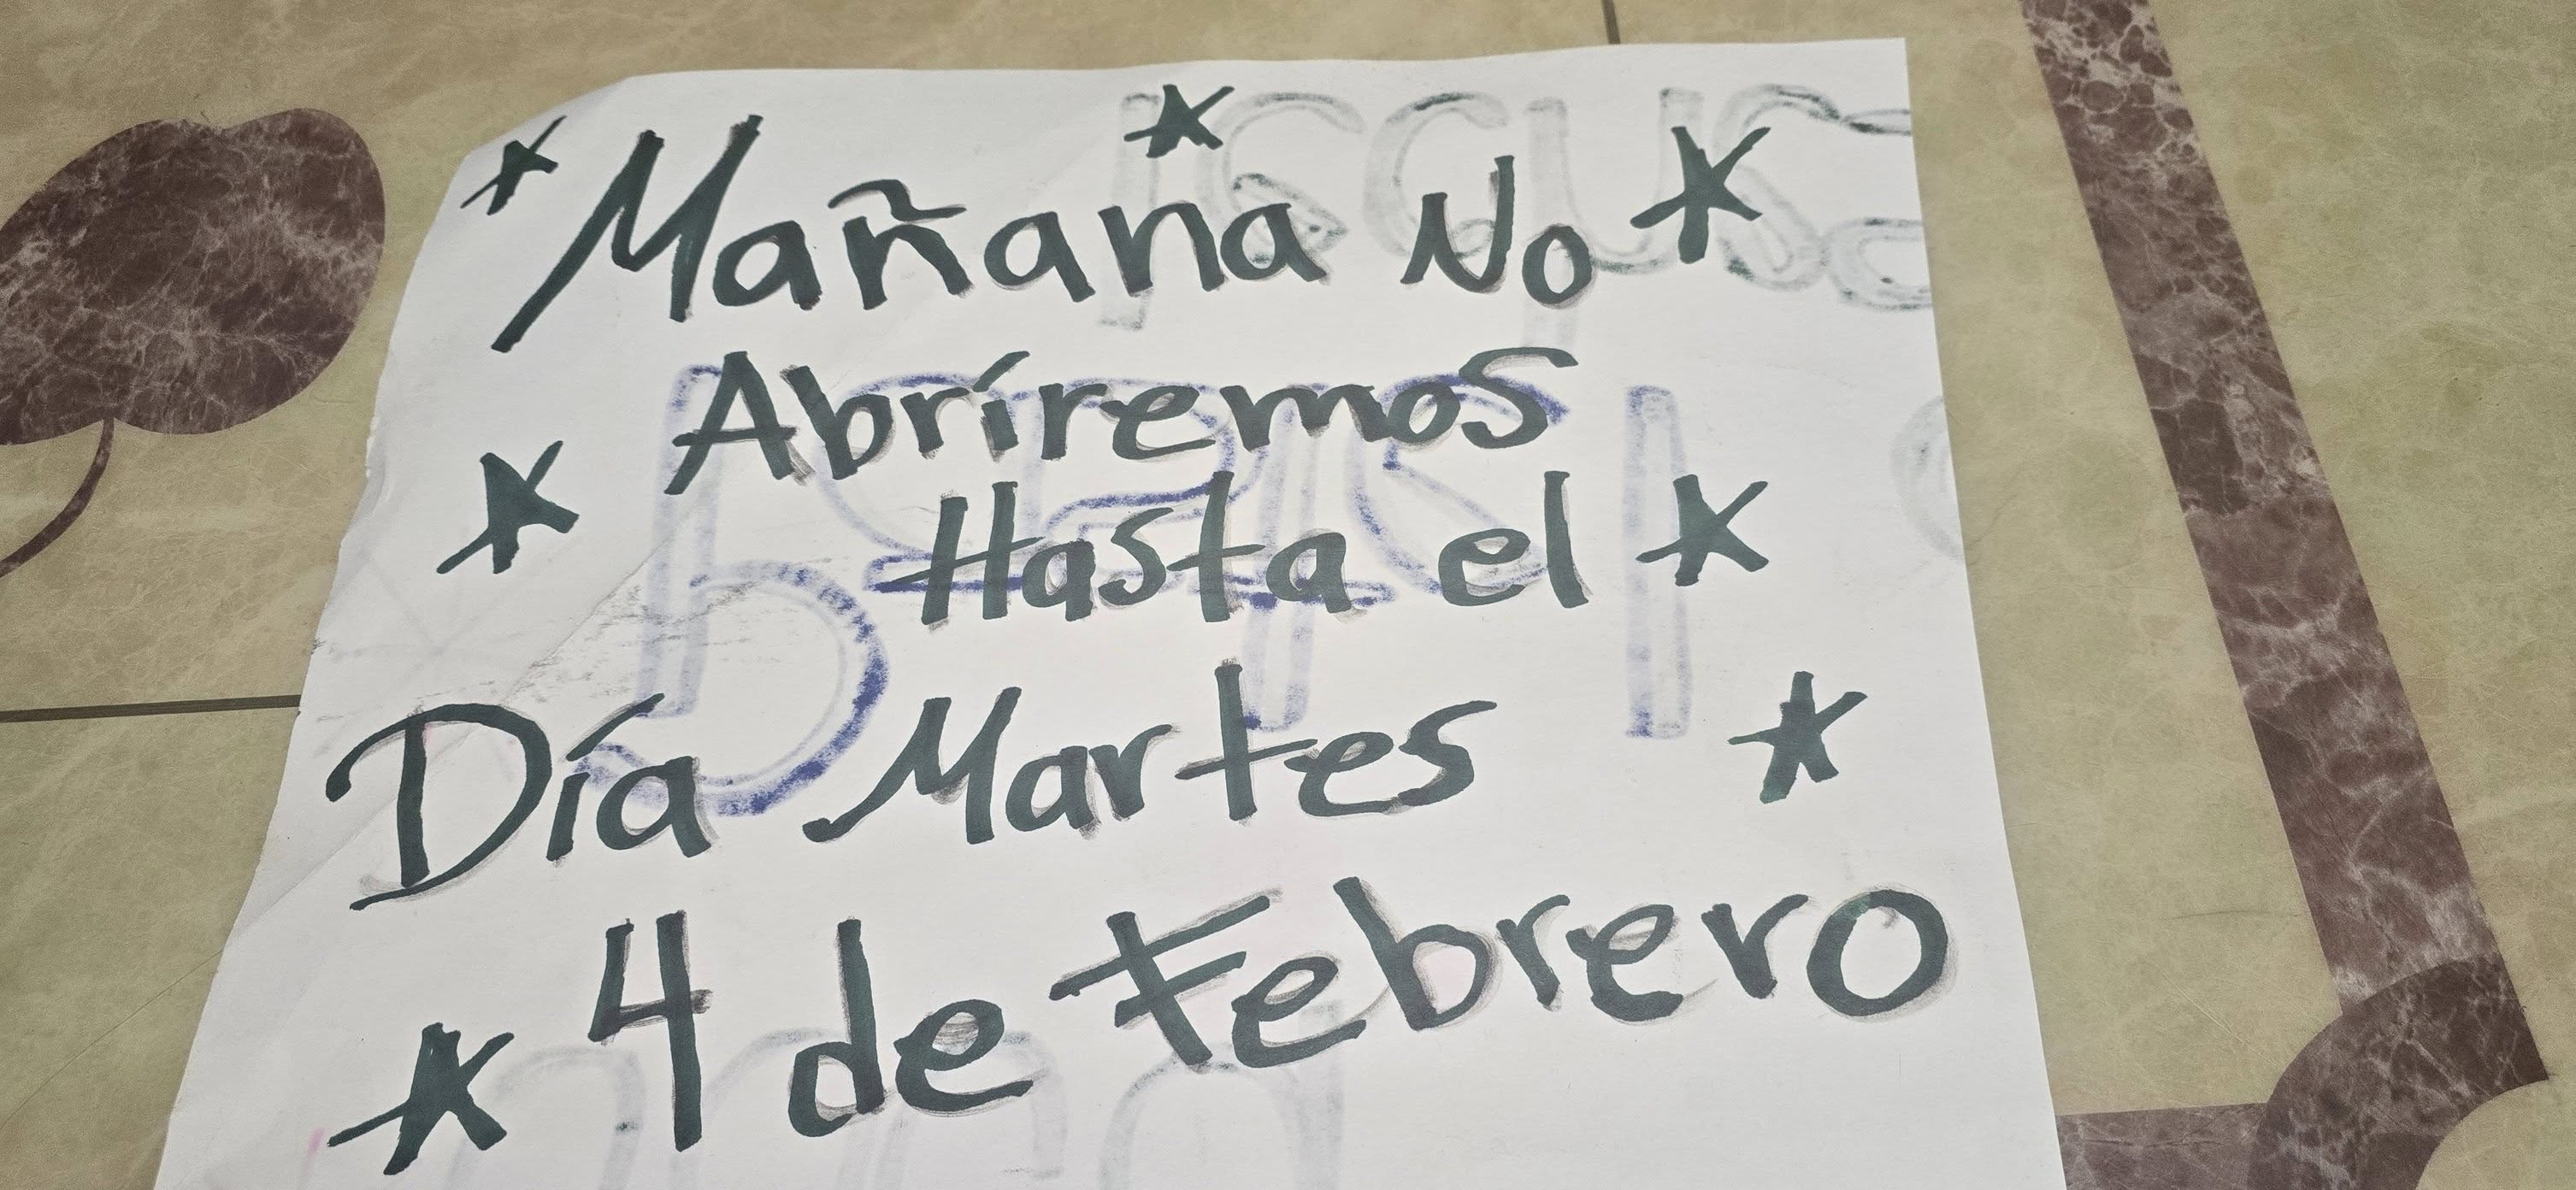 Mañana No
Abriremos
Hasta el
Día Martes
4 de Febrero